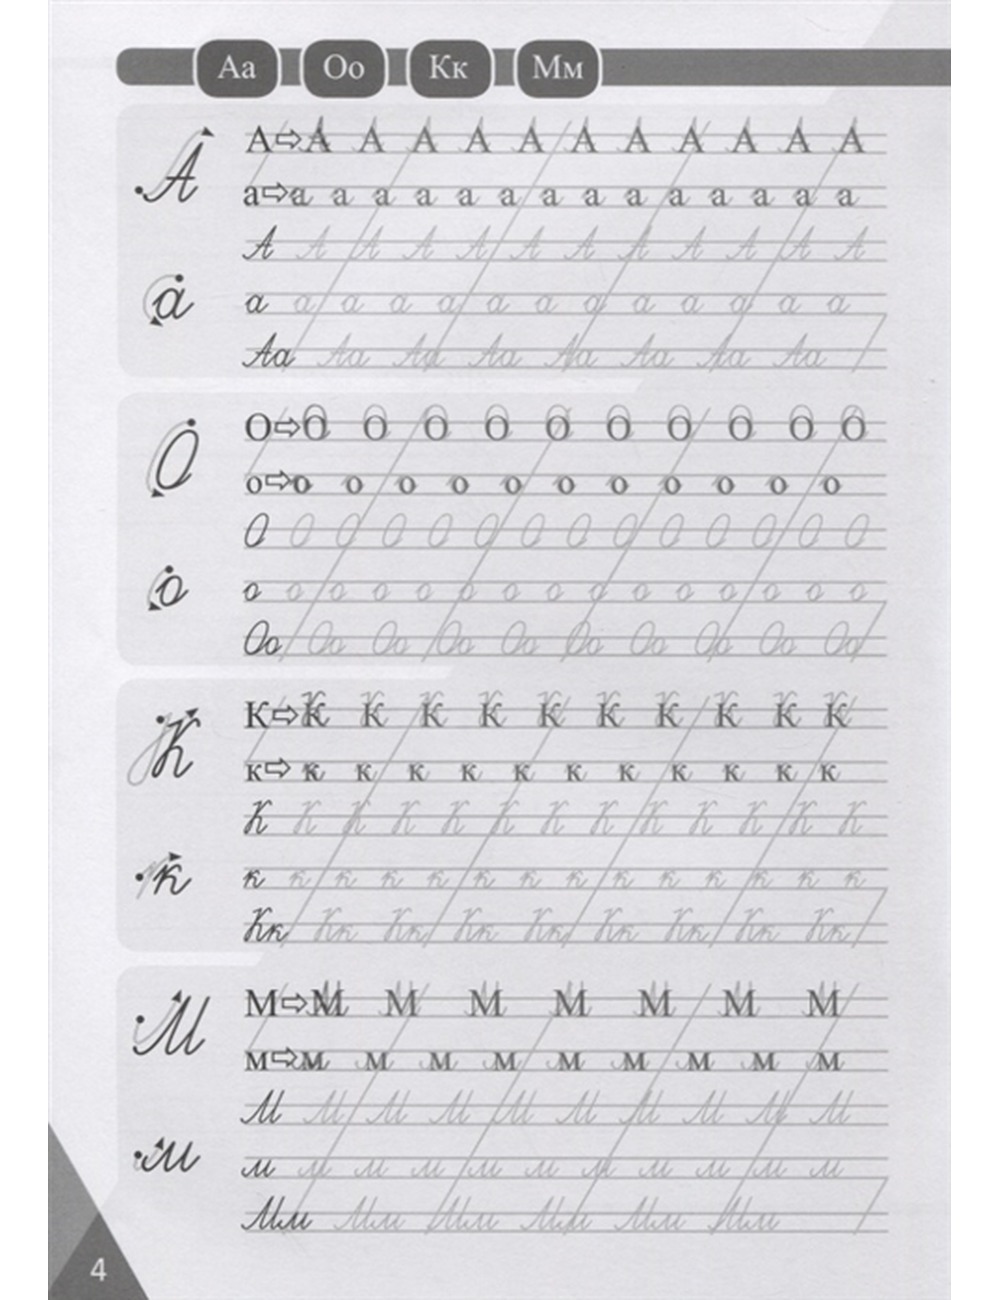 Аа Оо Кк Мм
А
А⇨А А А А А А А А А А А
а⇨а а а а а а а а а а а а а а
А А А А А А А А А А А А
а
а а а а а а а а а а а а а
Аа Аа Аа Аа Аа Аа Аа Аа
О
О⇨О О О О О О О О О О
о⇨о о о о о о о о о о о
О О О О О О О О О О О О О О
о
о о о о о о о о о о о о о о о
Оо Оо Оо Оо Оо Оо Оо Оо Оо Оо
К
К⇨К К К К К К К К К К
к⇨к к к к к к к к к к к
К К К К К К К К К К К К К
к
к к к к к к к к к к к к к к
Кк Кк Кк Кк Кк Кк Кк Кк Кк
М
М⇨М М М М М М М
м⇨м м м м м м м м м
М М М М М М М М М М
м
м м м м м м м м м м м
Мм Мм Мм Мм Мм Мм
4